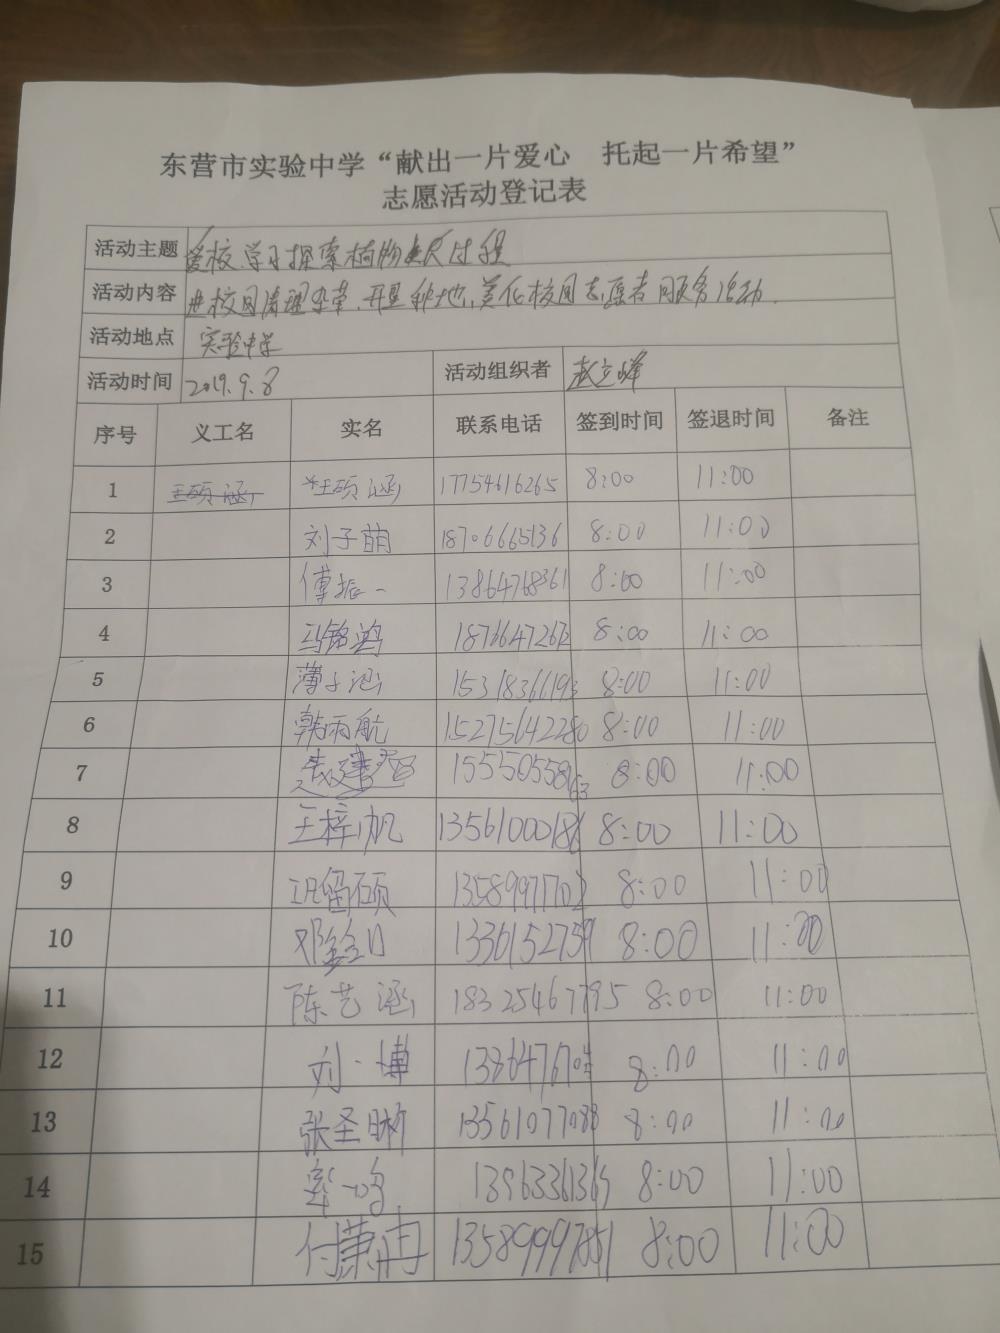 东营市实验中学“献出一片爱心 托起一片希望”
志愿活动登记表
活动主题 爱校学习探索植物生长过程
活动内容 进校园清理杂草、开垦种地、美化校园志愿者服务活动.
活动地点 实验中学
活动时间 2019.9.8 活动组织者 赵立峰
序号 义工名 实名 联系电话 签到时间 签退时间 备注
1 王硕涵 王硕涵 17754616265 8:00 11:00
2 刘子萌 18706665136 8:00 11:00
3 傅振一 13864768361 8:00 11:00
4 马铭鸿 18766472672 8:00 11:00
5 薄子涵 15318366193 8:00 11:00
6 韩雨航 15275642280 8:00 11:00
7 15550558163 8:00 11:00
8 王梓帆 13561000186 8:00 11:00
9 巩留硕 13589971702 8:00 11:00
10 邓 13361527591 8:00 11:00
11 陈艺涵 18325467795 8:00 11:00
12 刘一博 8:00 11:00
13 张圣晰 13561077088 8:00 11:00
14 一鸣 13963361369 8:00 11:00
15 付萧冉 13589997851 8:00 11:00